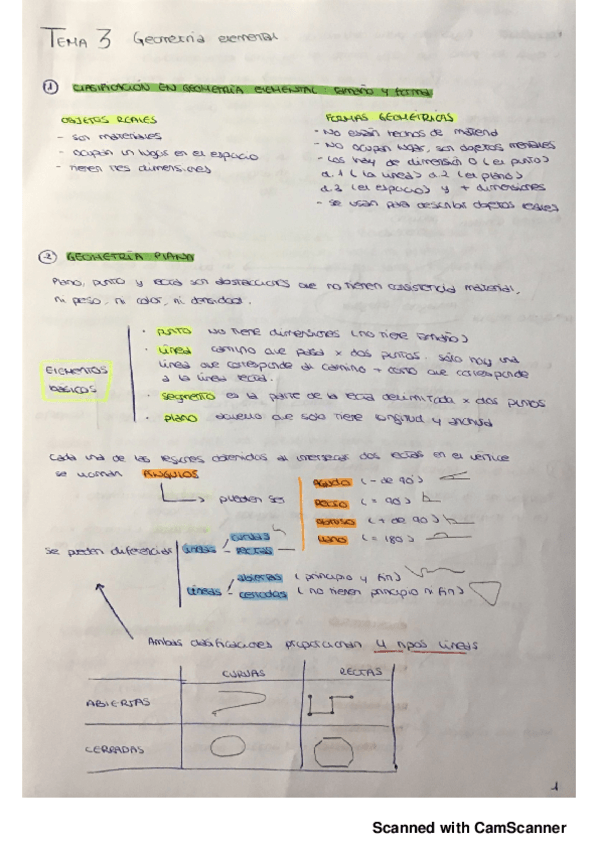 TEMA 3 Geometría elemental
1 CLASIFICACIÓN EN GEOMETRÍA ELEMENTAL: TAMAÑO Y FORMA
OBJETOS REALES
- son materiales
- ocupan un lugar en el espacio
- tienen tres dimensiones
FORMAS GEOMÉTRICAS
- No están hechos de material
- No ocupan lugar, son objetos mentales
- Los hay de dimensión 0 (el punto)
d. 1 (la línea) d. 2 (el plano)
d. 3 (el espacio) y + dimensiones
- se usan para describir objetos reales
2 GEOMETRÍA PLANA
Plano, punto y recta son abstracciones que no tienen consistencia material,
ni peso, ni color, ni densidad.
ELEMENTOS
BÁSICOS
· PUNTO No tiene dimensiones (no tiene tamaño)
· Línea camino que pasa x dos puntos. Sólo hay una
línea que corresponde al camino + corto que corresponde
a la línea recta.
· segmento es la parte de la recta delimitada x dos puntos
· plano aquello que solo tiene longitud y anchura
Cada una de las regiones obtenidas al intersecar dos rectas en el vértice
se llaman ÁNGULOS
pueden ser
AGUDO (- de 90°)
RECTO (= 90°)
OBTUSO (+ de 90°)
LLANO (= 180°)
Se pueden diferenciar
LÍNEAS
CURVAS
RECTAS
LÍNEAS
abiertas (principio y fin)
cerradas (no tienen principio ni fin)
Ambas clasificaciones proporcionan 4 tipos líneas
CURVAS RECTAS
ABIERTAS
CERRADAS
1
Scanned with CamScanner